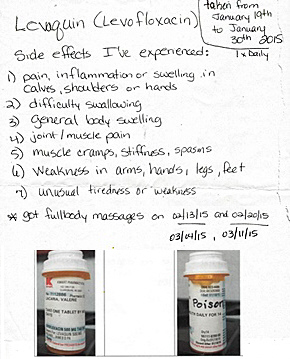 Levaquin (Levofloxacin)
taken from
January 19th
to January
30th 2015
1 x Daily
Side effects I've experienced:
1) pain, inflammation or swelling in
calves, shoulders or hands
2) difficulty swallowing
3) general body swelling
4) joint/muscle pain
5) muscle cramps, stiffness, spasms
6) weakness in arms, hands, legs, feet
7) unusual tiredness or weakness
* got fullbody massages on 02/13/15 and 02/20/15
03/04/15, 03/11/15
Poison
DAILY FOR